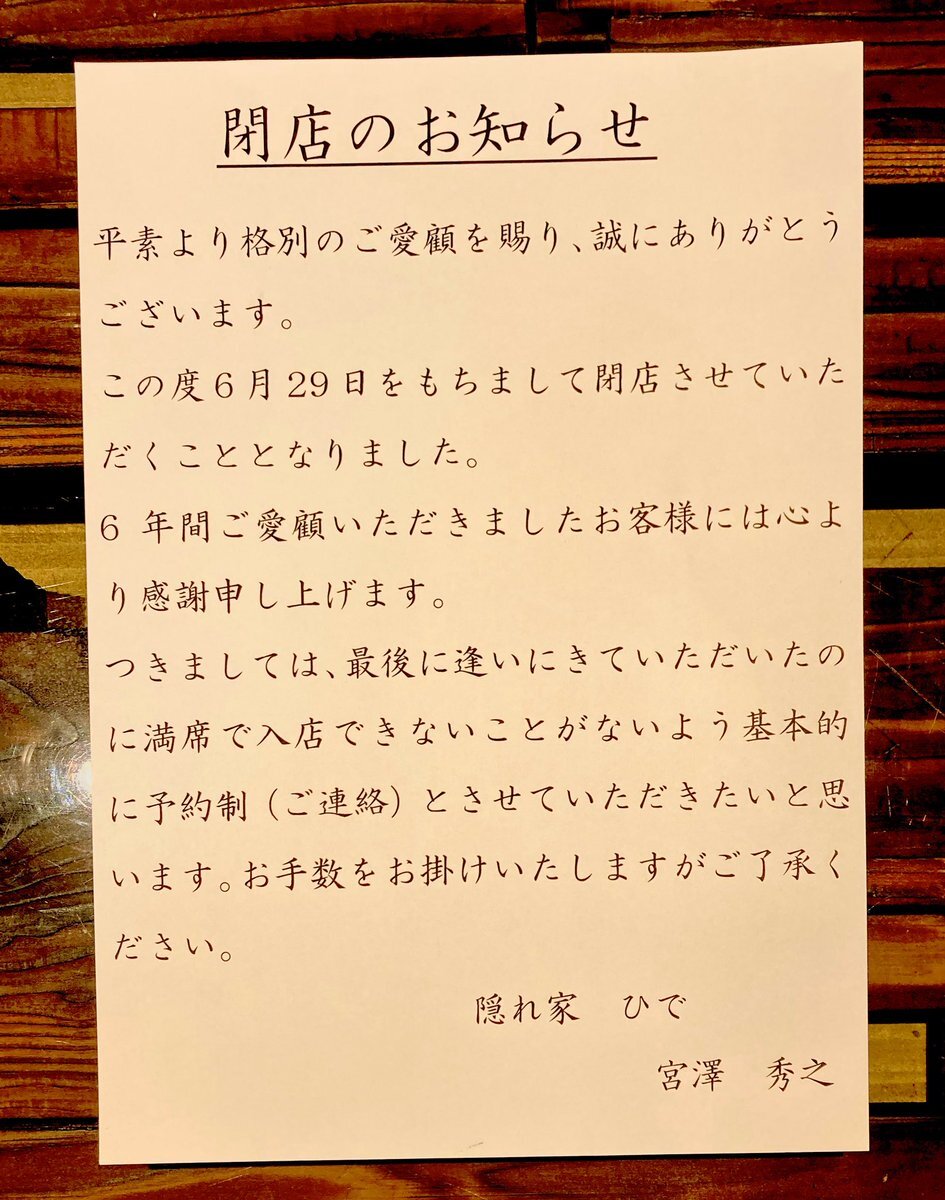 閉店のお知らせ
平素より格別のご愛顧を賜り、誠にありがとう
ございます。
この度6月29日をもちまして閉店させていた
だくこととなりました。
6 年間ご愛顧いただきましたお客様には心よ
り感謝申し上げます。
つきましては、最後に逢いにきていただいたの
に満席で入店できないことがないよう基本的
に予約制（ご連絡）とさせていただきたいと思
います。お手数をお掛けいたしますがご了承く
ださい。
隠れ家　ひで
宮澤　秀之